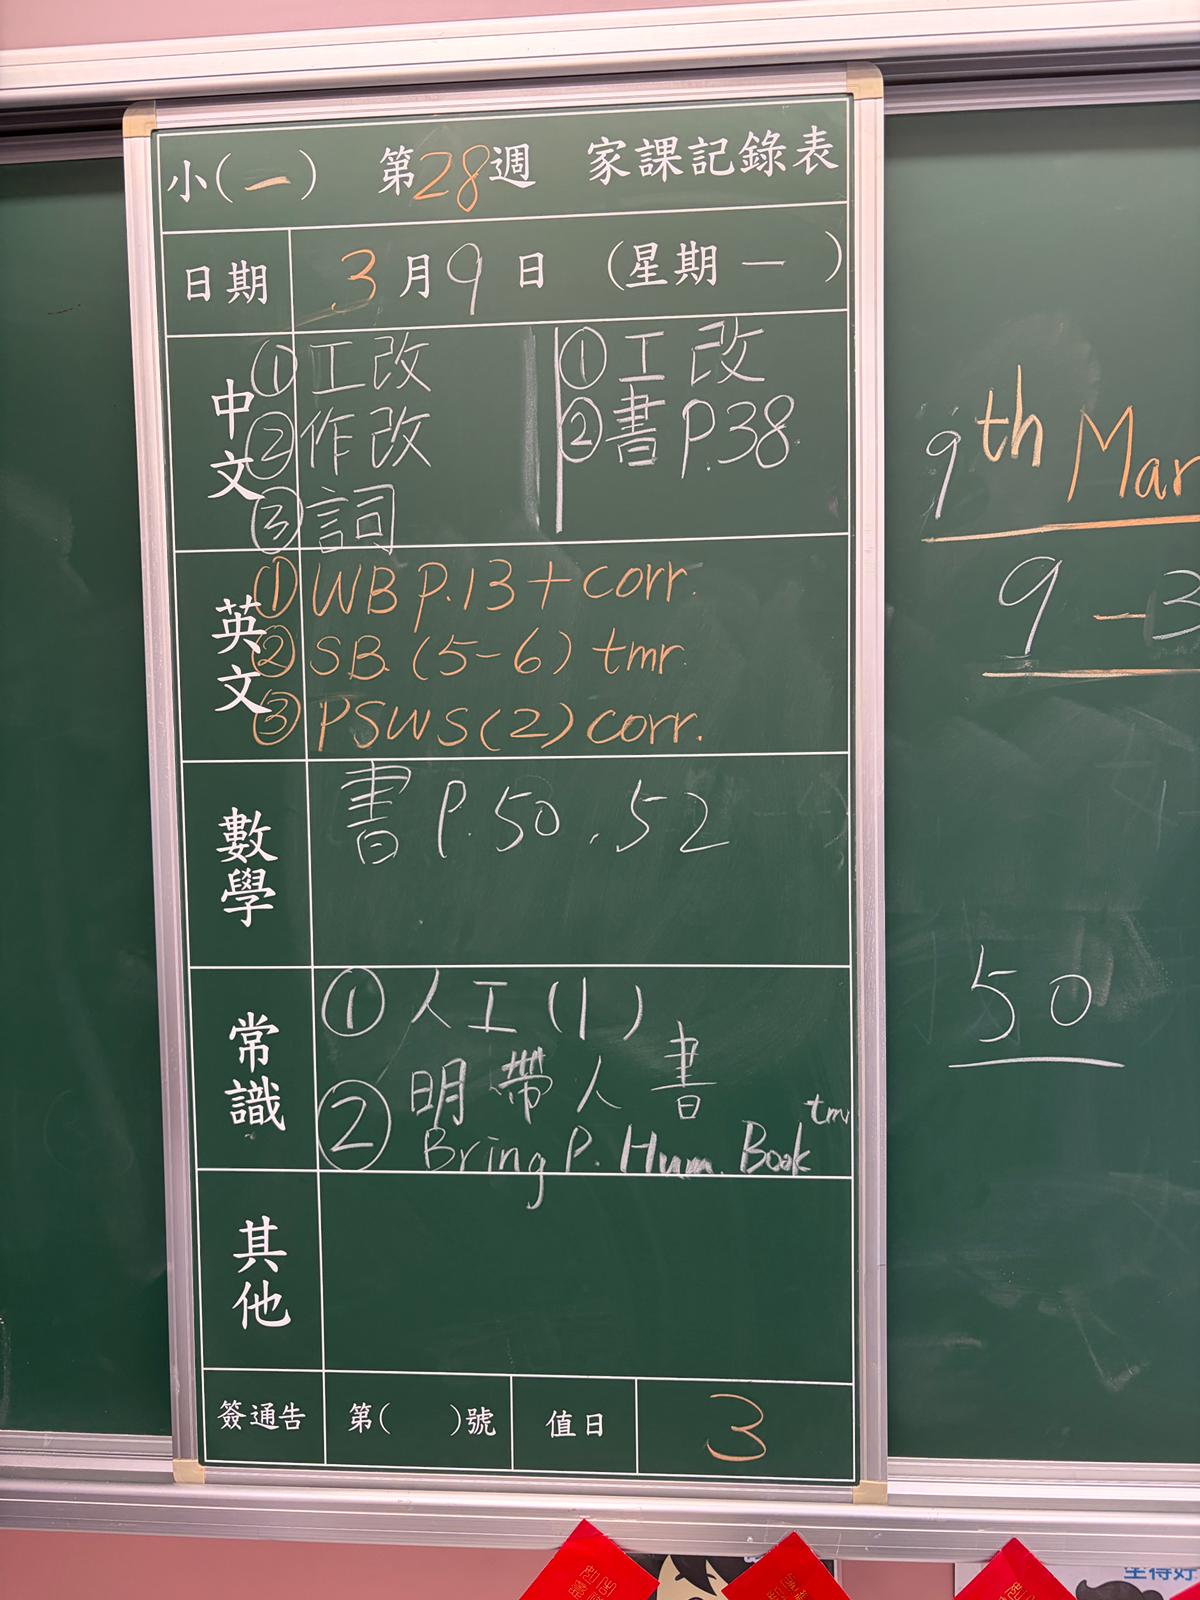 小(一) 第28週 家課記錄表
日期 3月9日 (星期一)
中文
① 工改
② 作改
③ 詞
① 工改
② 書 P.38
英文
① WB P.13 + corr.
② SB (5-6) tmr.
③ PSWS(2) corr.
數學
書 P.50, 52
常識
① 人工(1)
② 明帶人書
Bring P. Hum. Book tmr
其他
簽通告 第( )號 值日 3
9th Mar
9 - 3
50
坐得好